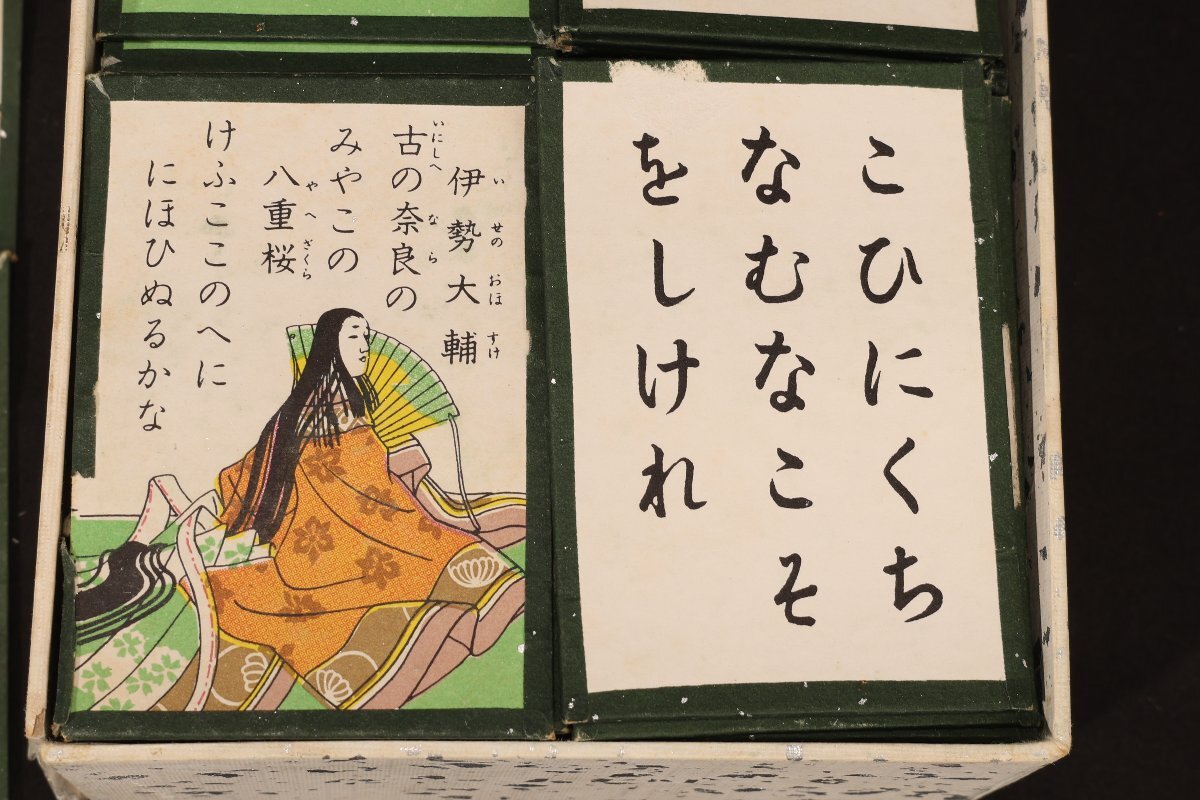 伊勢大輔
いせのおほすけ
古の奈良の
いにしへなら
みやこの
八重桜
やへざくら
けふここのへに
にほひぬるかな
こひにくち
なむなこそ
をしけれ